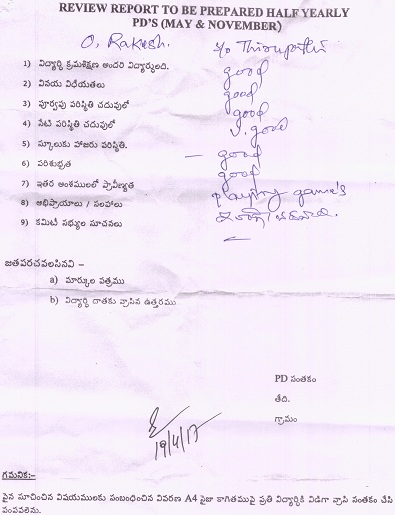 REVIEW REPORT TO BE PREPARED HALF YEARLY
PD'S (MAY & NOVEMBER)
O. Rakesh. S/o Thirupathi
1) విద్యార్థి క్రమశిక్షణ అందరి విద్యార్థులది. good
2) వినయ విధేయతలు good
3) పూర్వపు పరిస్థితి చదువులో good
4) నేటి పరిస్థితి చదువులో V. good
5) స్కూలుకు హాజరు పరిస్థితి. — good
6) పరిశుభ్రత good
7) ఇతర అంశములలో ప్రావీణ్యత playing game's
8) అభిప్రాయాలు / సలహాలు
9) కమిటీ సభ్యుల సూచనలు
జతపరచవలసినవి –
a) మార్కుల పత్రము
b) విద్యార్థి దాతకు వ్రాసిన ఉత్తరము
PD సంతకం
తేది.
గ్రామం
19/4/17
గమనిక:-
పైన సూచించిన విషయములకు సంబంధించిన వివరణ A4 సైజు కాగితముపై ప్రతి విద్యార్థికి విడిగా వ్రాసి సంతకం చేసి
పంపవలెను.